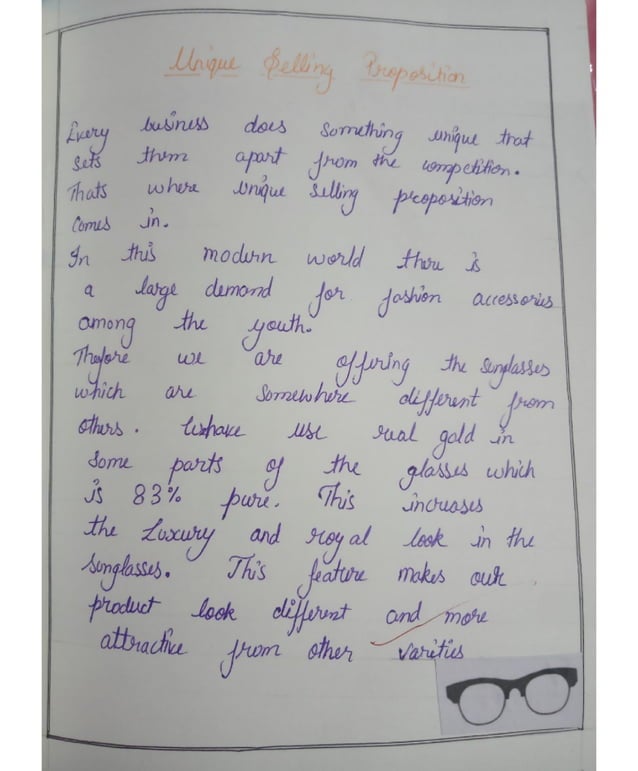 Unique Selling Proposition
Every business does something unique that
sets them apart from the competition.
Thats where unique selling proposition
comes in.
In this modern world there is
a large demand for fashion accessories
among the youth.
Therefore we are offering the sunglasses
which are somewhere different from
others. use real gold in
some parts of the glasses which
is 83% pure. This increases
the Luxury and royal look in the
sunglasses. This feature makes our
product look different and more
attractive from other varities